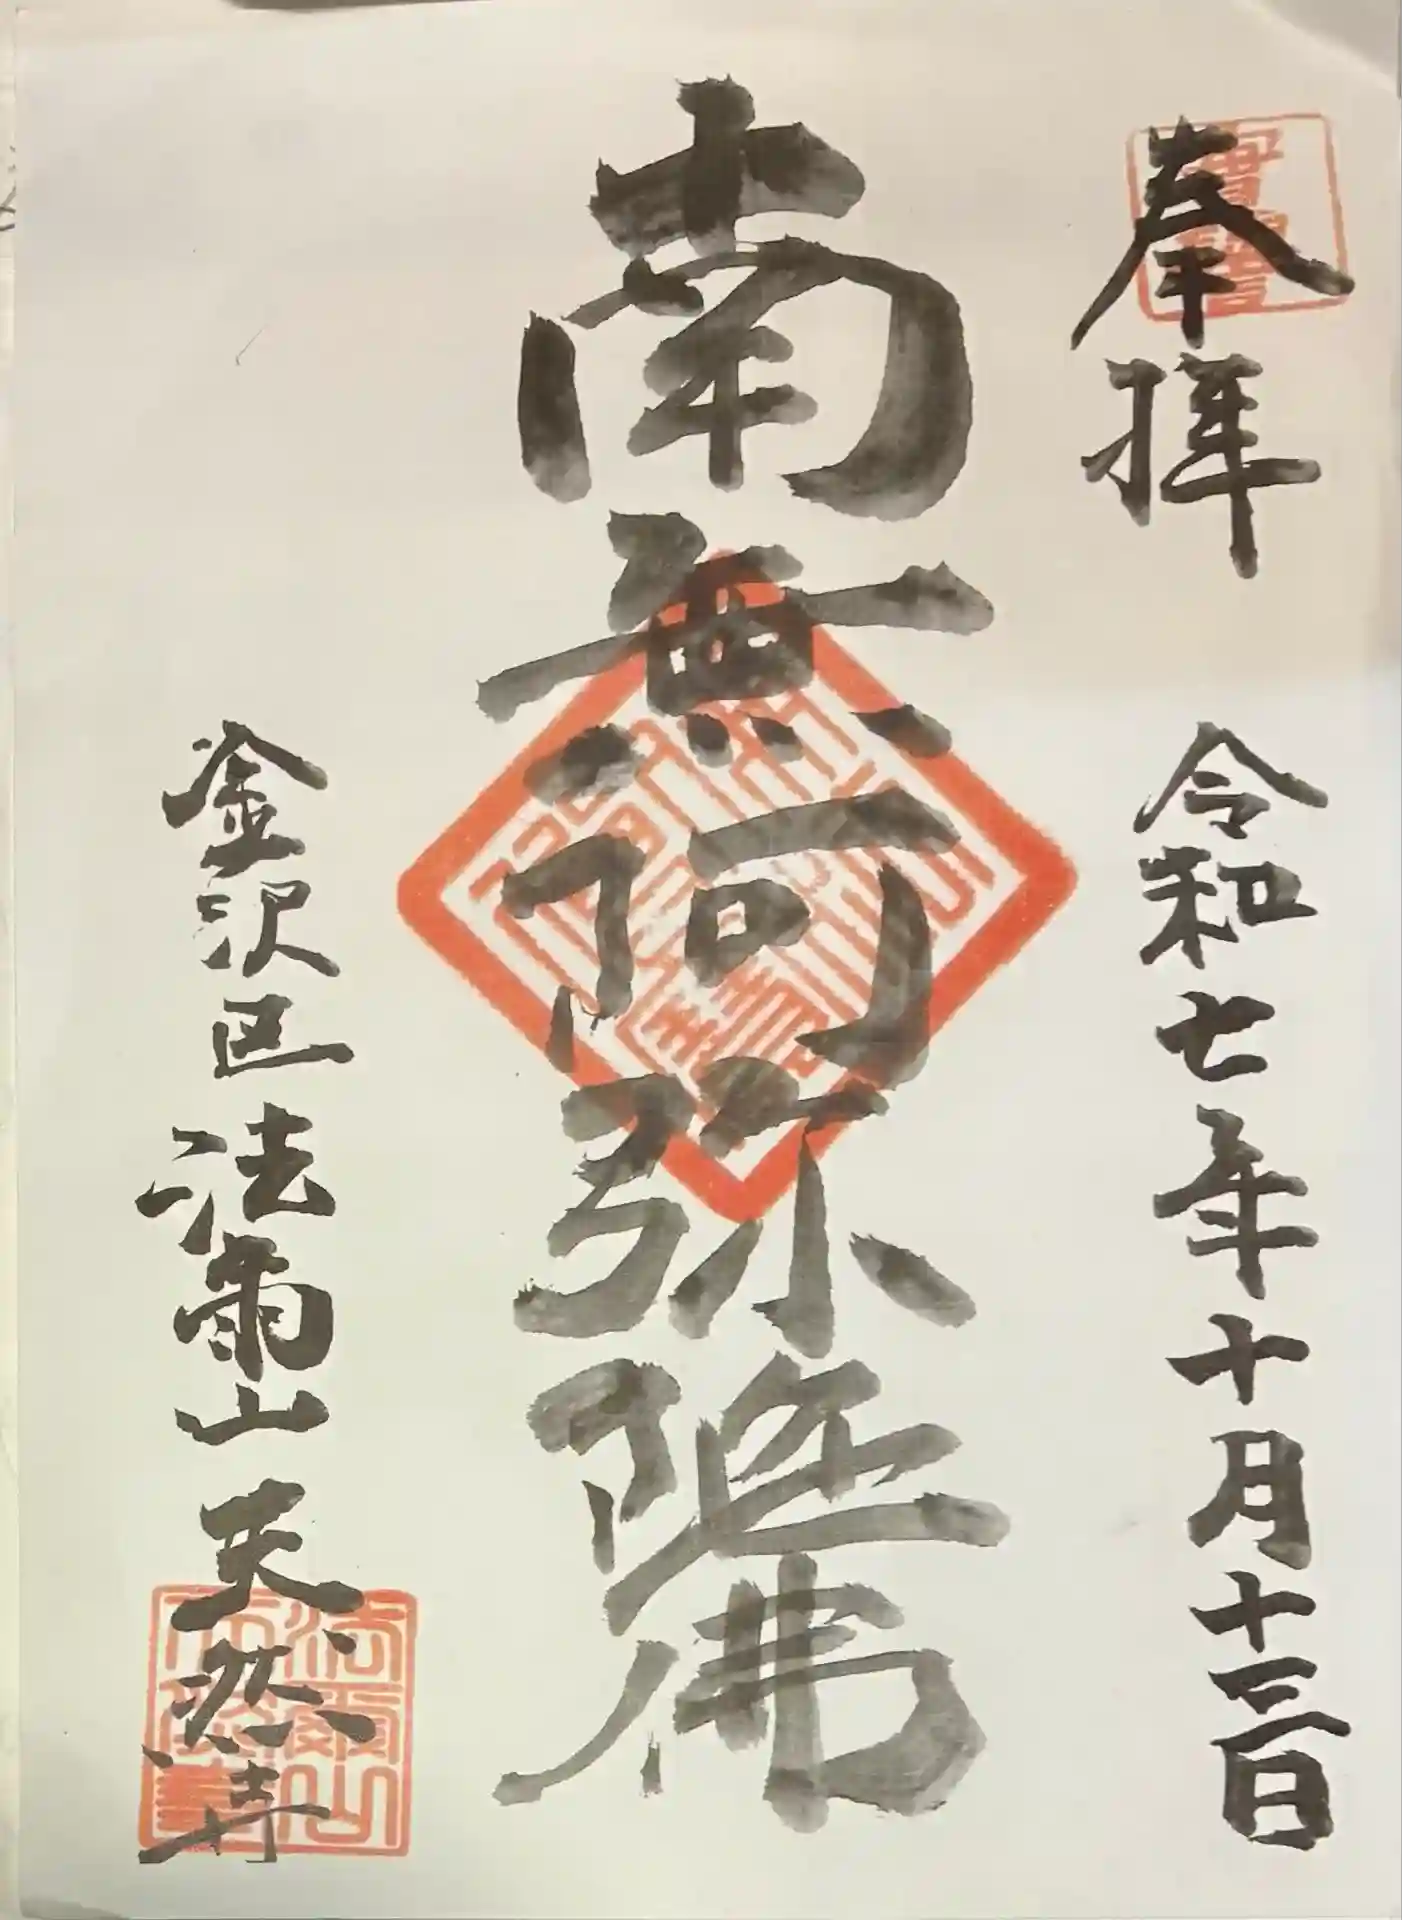 奉拝
令和七年十月十三日
南無阿弥陀佛
金沢区 法爾山 天然寺
法爾山
天然寺